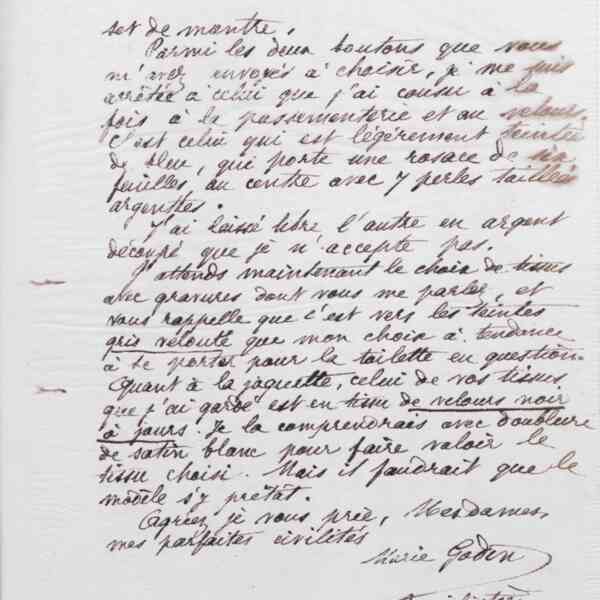 set de montre.
Parmi les deux boutons que vous
m'avez envoyés à choisir, je me suis
arrêtée à celui que j'ai cousu à la
fois à la passementerie et au velours.
C'est celui qui est légèrement teinté
de bleu, qui porte une rosace de six
feuilles, au centre avec 7 perles taillées
argentées.
J'ai laissé libre l'autre en argent
découpé que je n'accepte pas.
J'attends maintenant le choix de tissus
avec gravures dont vous me parlez, et
vous rappelle que c'est vers les teintes
gris velouté que mon choix a tendance
à se porter pour la toilette en question.
Quant à la jaquette, celui de vos tissus
que j'ai gardé est en tissu de velours noir
à jours. Je la comprendrais avec doublure
de satin blanc pour faire valoir le
tissu choisi. Mais il faudrait que le
modèle s'y prêtât.
Agréez je vous prie, Mesdames,
mes parfaites civilités
Marie Godin